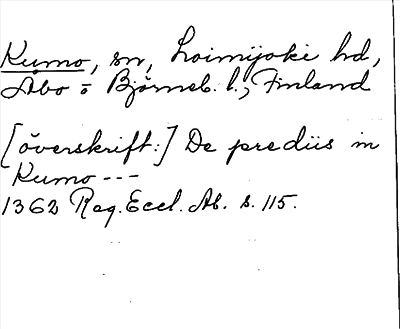 Kumo, sn, Loimijoki hd,
Åbo o Björneb. l., Finland
[överskrift:] De prediis in
Kumo ---
1362 Reg. Eccl. Ab. s. 115.